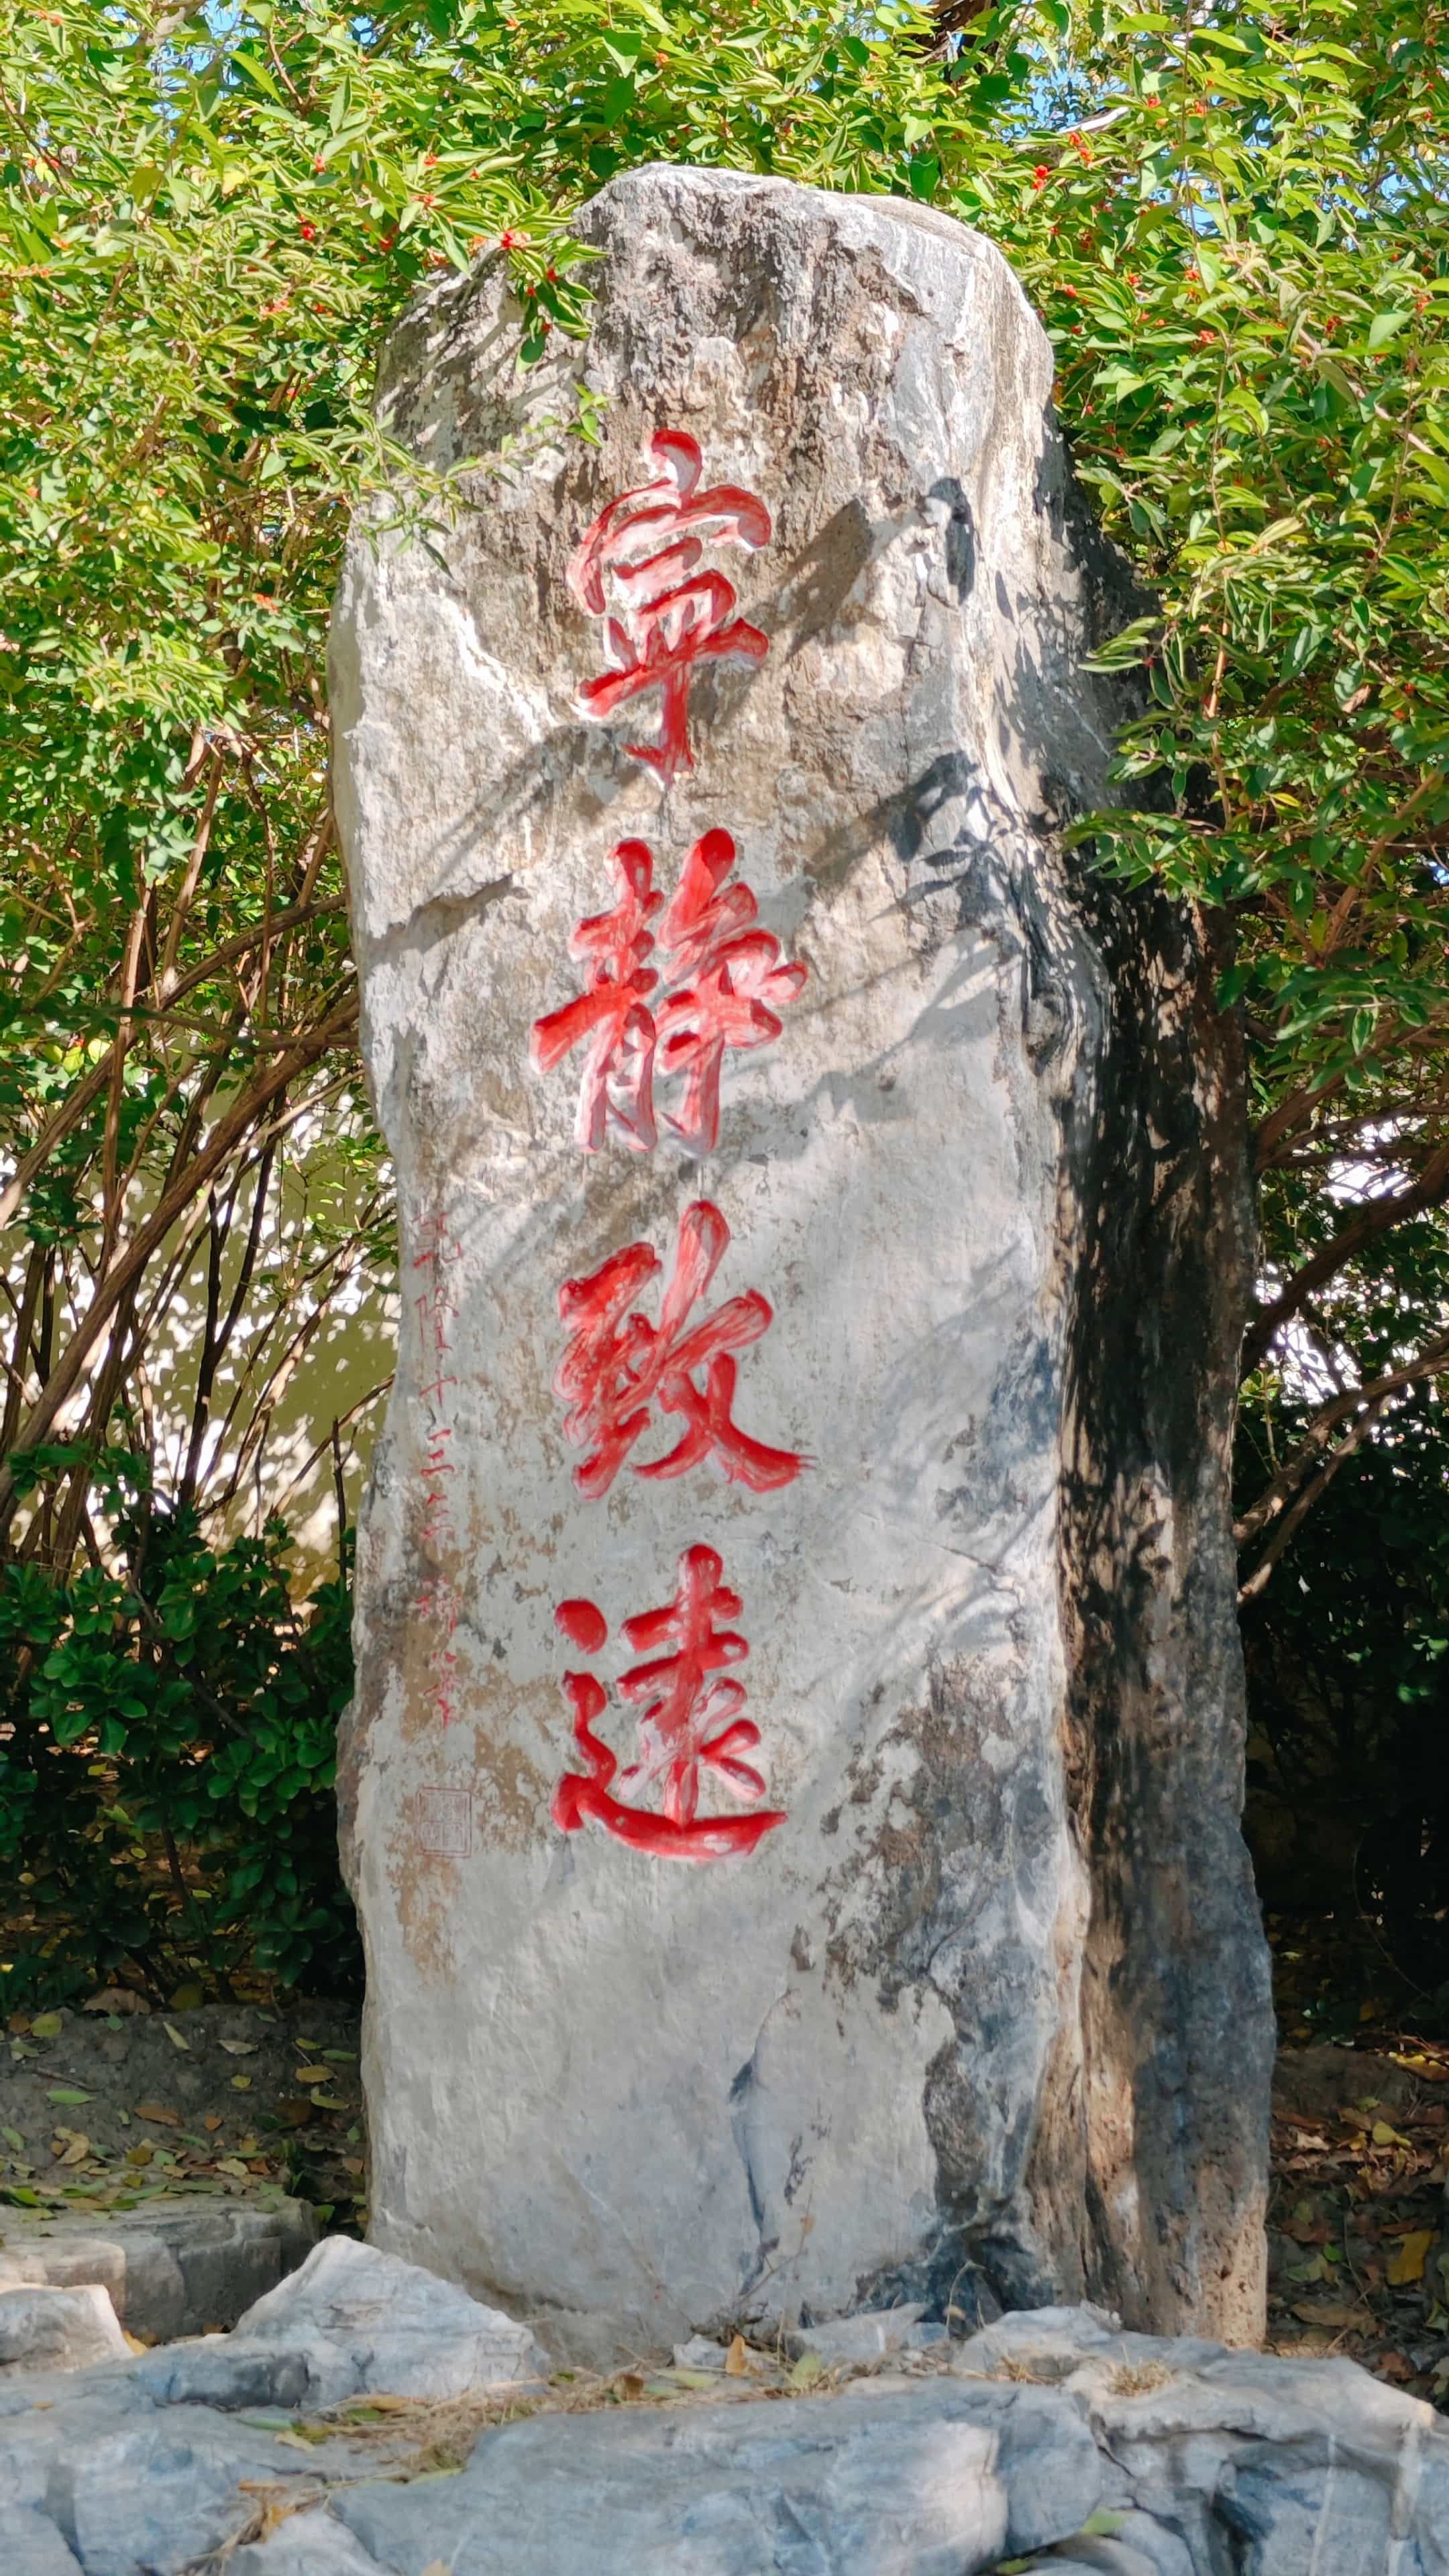 寧靜致遠
乾隆十三年御筆